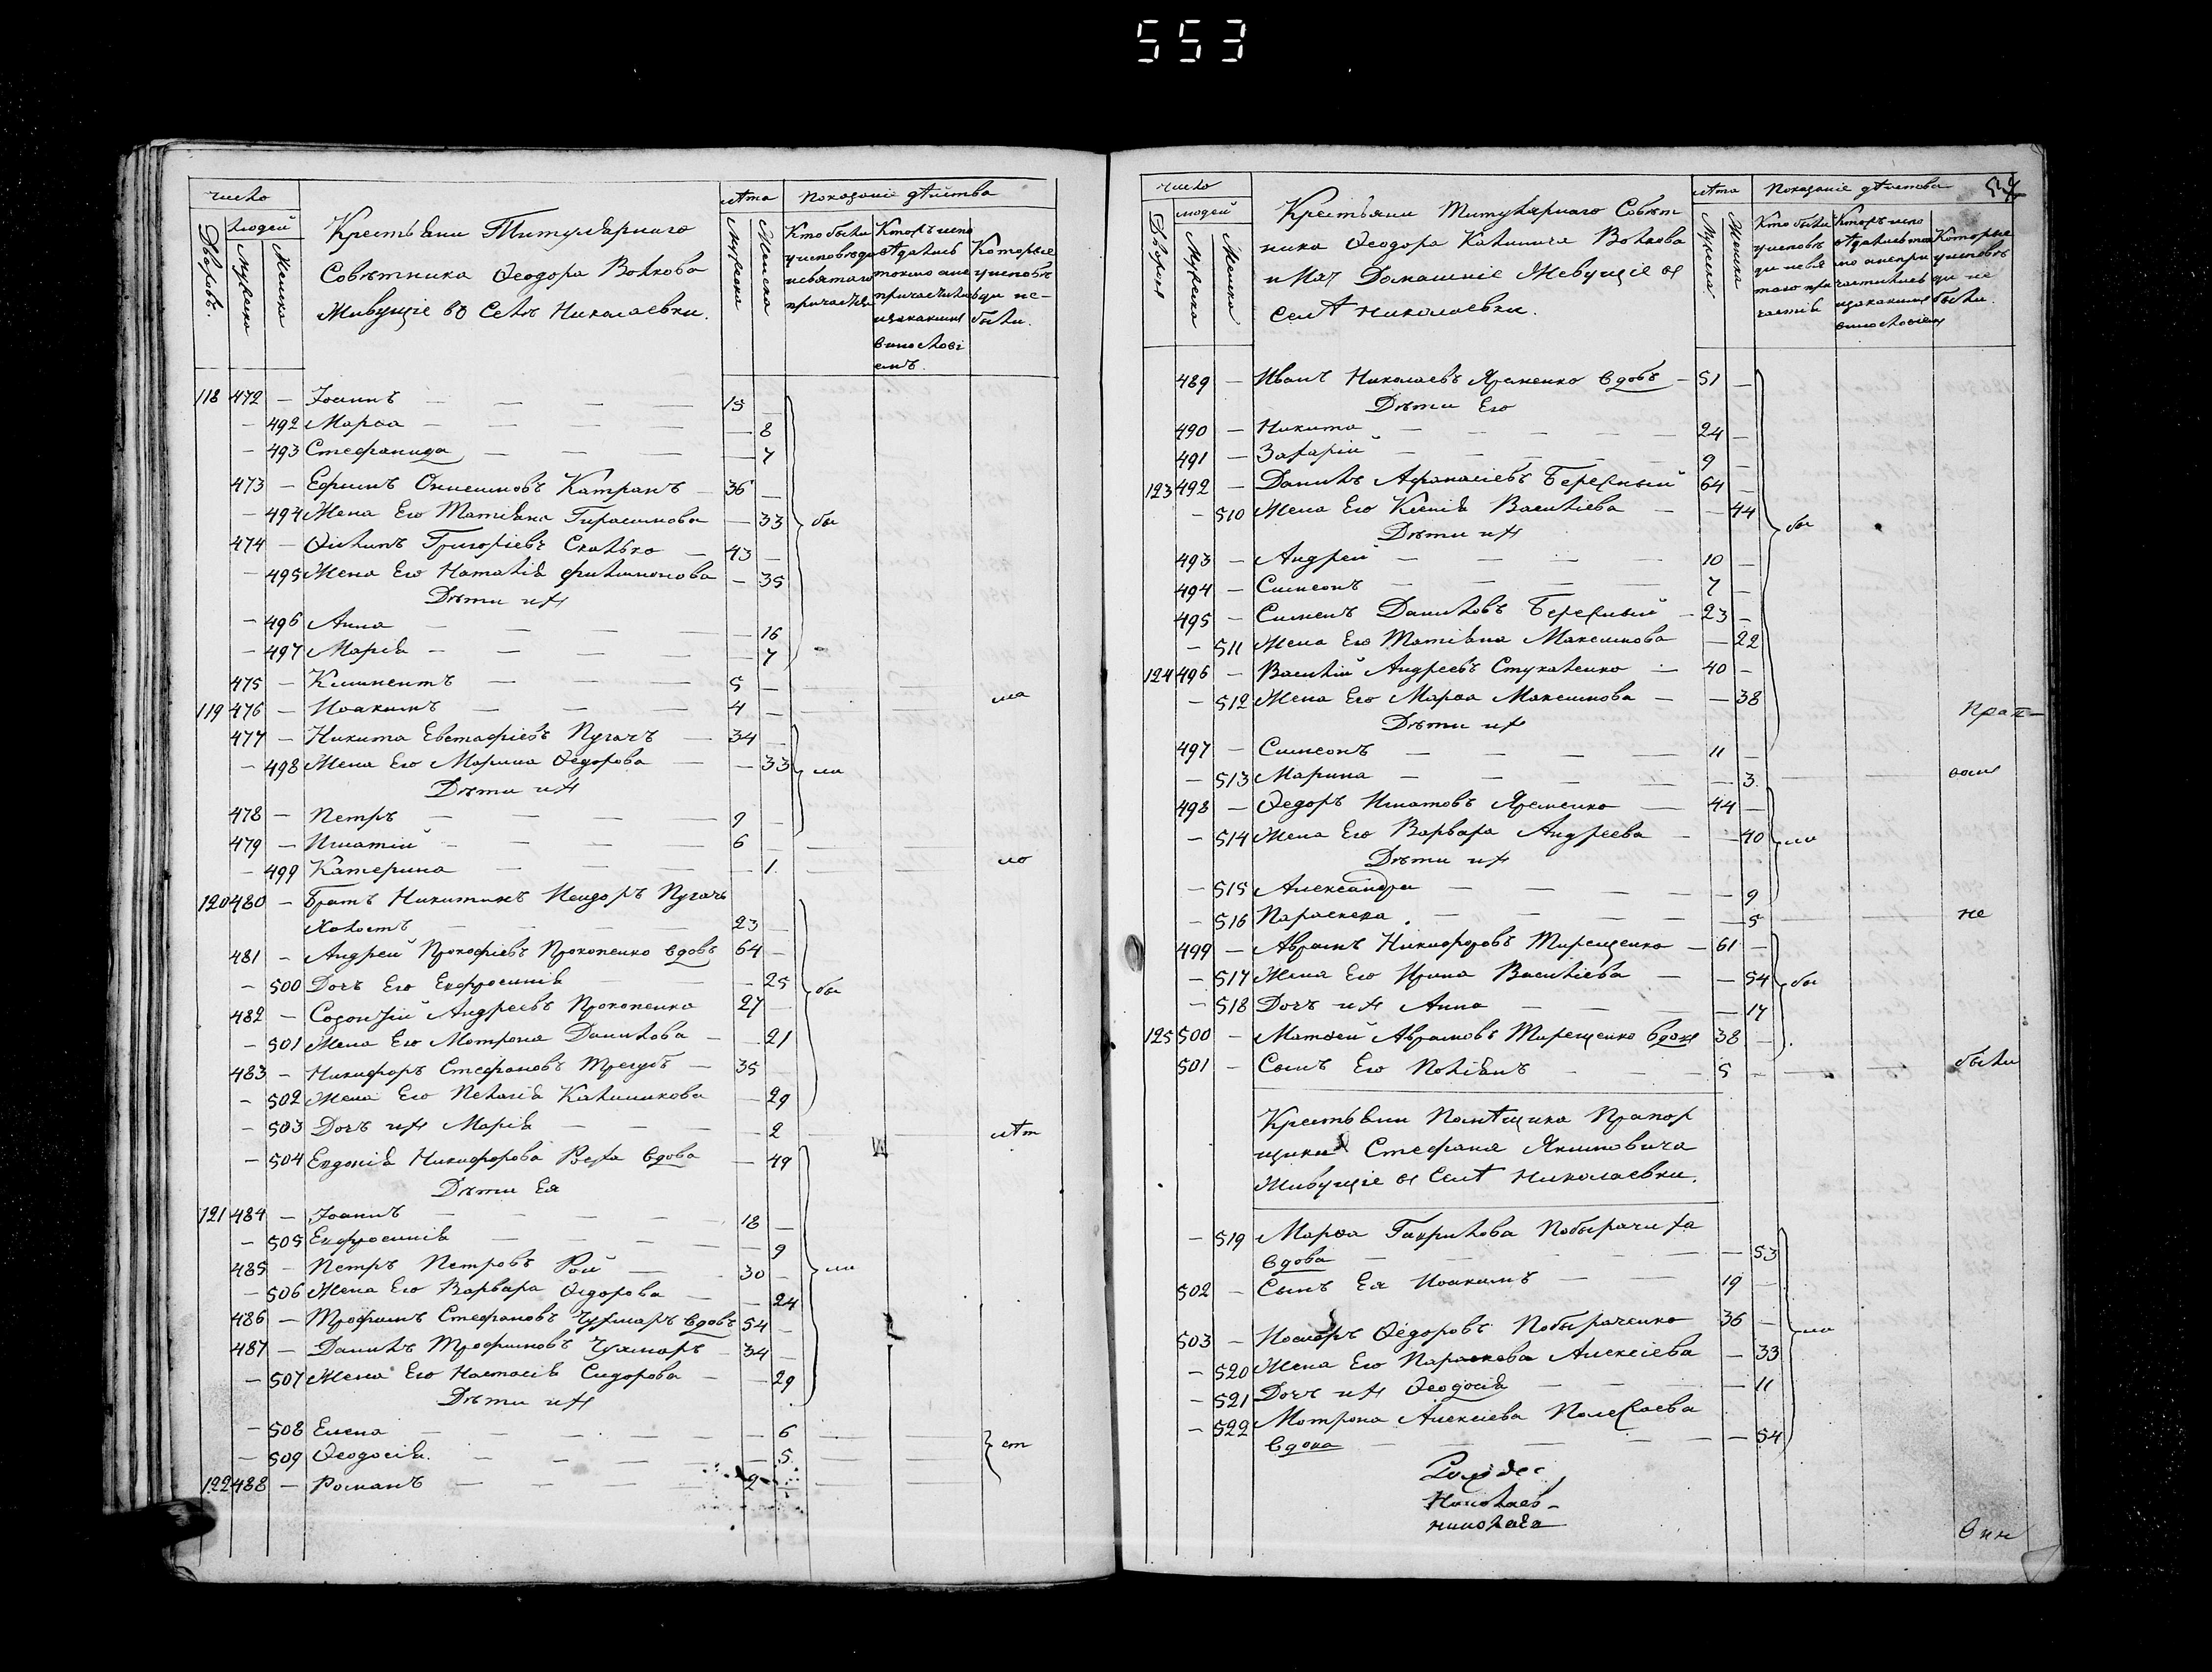 553
число
лѣта
Показаніе дѣйства
Дворовъ.
людей
Мужеска
Женска
Крестьяни Титулярнаго
Совѣтника Ѳеодора Волкова
Живущіе во Селѣ Николаевки.
Мужеска
Женска
Кто были
у исповѣди
исвятаго
причастія
Которъ испо
ѣдались
токмо ане
причастились
изакакимъ
винословi
емъ.
Которые
у исповѣ
ди не-
были.
118 472 — Іоаннъ — 15 —
— 492 Марѳа — — 8
— 493 Стефанида — — 7
473 — Ефимъ Онисимовъ Катранъ — 36 —
— 494 Жена Его Татіяна Гирасимова — 33 бы
474 — Ѳилипъ Григоріевъ Скалько — 43 —
— 495 Жена Его Наталія филимонова — 35
Дѣти ихъ
— 496 Анна — — 16
— 497 Марія — — 7
475 — Климентъ — 5 —
119 476 — Иоакимъ — 4 — ша
477 — Никита Евстафіевъ Пугачъ — 34 —
— 498 Жена Его Марина Ѳедорова — 33 ли
Дѣти ихъ
478 — Петръ — 9 —
479 — Игнатій — 6 —
— 499 Катерина — — 1. ло
120 480 — Братъ Никитинъ Исидоръ Пугачъ
Холостъ — 23 —
481 — Андрей Прокофіевъ Прокопенко вдовъ 64 —
— 500 Дочъ Его Евфросинія — 25 бы
482 — Созонтій Андреевъ Прокопенко 27 —
— 501 Жена Его Мотрона Данилова — 21
483 — Никифоръ Стефановъ Трегубъ — 35 —
— 502 Жена Его Пелагія Калиникова — 29
— 503 Дочъ ихъ Марія — — 2 лѣт
— 504 Евдокія Никифорова Реха вдова — 49
Дѣти Ея
121 484 — Іоаннъ — 18 —
— 505 Евфросинія — — 9
485 — Петръ Петровъ Рой — 30 — ли
— 506 Жена Его Варвара Ѳедорова — 24
486 — Трофимъ Стефановъ Чухмаръ вдовъ 54 —
487 — Данилъ Трофимовъ Чухмаръ — 34 —
— 507 Жена Его Настасія Сидорова — 29
Дѣти ихъ
— 508 Елена — — 6
— 509 Ѳеодосія. — — 5. ст
122 488 — Романъ — 2 —
число
лѣта
Показаніе дѣйства
57
Дворовъ
людей
Мужеска
Женска
Крестьяни Титулярнаго Совѣт
ника Ѳеодора Калинича Волкова
Домашніе Живущіе въ
Селѣ Николаевки.
Мужеска
Женска
Кто были
у исповѣ
ди исвя
таго при
частія
Которъ испо
ѣдались ток
мо анепри
частились
изакакимъ
винословіем
Которые
у исповѣ
ди не
были.
489 — Иванъ Николаевъ Яраненко вдовъ — 51 —
Дѣти Его
490 — Никита — 24 —
491 — Захарій — 9 —
123 492 — Данилъ Афанасіевъ Бережный 64 —
— 510 Жена Его Ксенія Василіева — — 44 бы
Дѣти ихъ
493 — Андрей — 10 —
494 — Симеонъ — 7 —
495 — Симеонъ Даниловъ Бережный — 23 —
— 511 Жена Его Татіяна Максимова — 22
124 496 — Василій Андреевъ Стукаленко — 40 —
— 512 Жена Его Марѳа Максимова — — 38
Дѣти ихъ
497 — Симеонъ — 11 —
— 513 Марина — — 3.
498 — Ѳедоръ Игнатовъ Яременко — 44 —
— 514 Жена Его Варвара Андреева — 40 ли
Дѣти ихъ
— 515 Александра — — 9
— 516 Параскева. — — 5 не
499 — Аврамъ Никифоровъ Тирещенко — 61 —
— 517 Жена Его Ирина Василіева — — 54 бы
— 518 Дочъ ихъ Анна — — 17
125 500 — Матѳей Аврамовъ Тирещенко вдовъ 38 —
501 — Сынъ Его Поліянъ — 5 — были
Крестьяни Помѣщика Прапор
щика Стефана Якимовича
Живущіе въ Селѣ Николаевки.
— 519 Марѳа Гаврилова Побырачиха
вдова — — 53
502 — Сынъ Ея Иоакимъ — 19 —
503 — Ѳедоровъ Побыраченко 36 — ли
— 520 Жена Его Параскева Алексіева — 33
— 521 Дочъ ихъ Ѳеодосія — — 11
— 522 Мотрона Алексіева
вдова — — 54
Николаев-